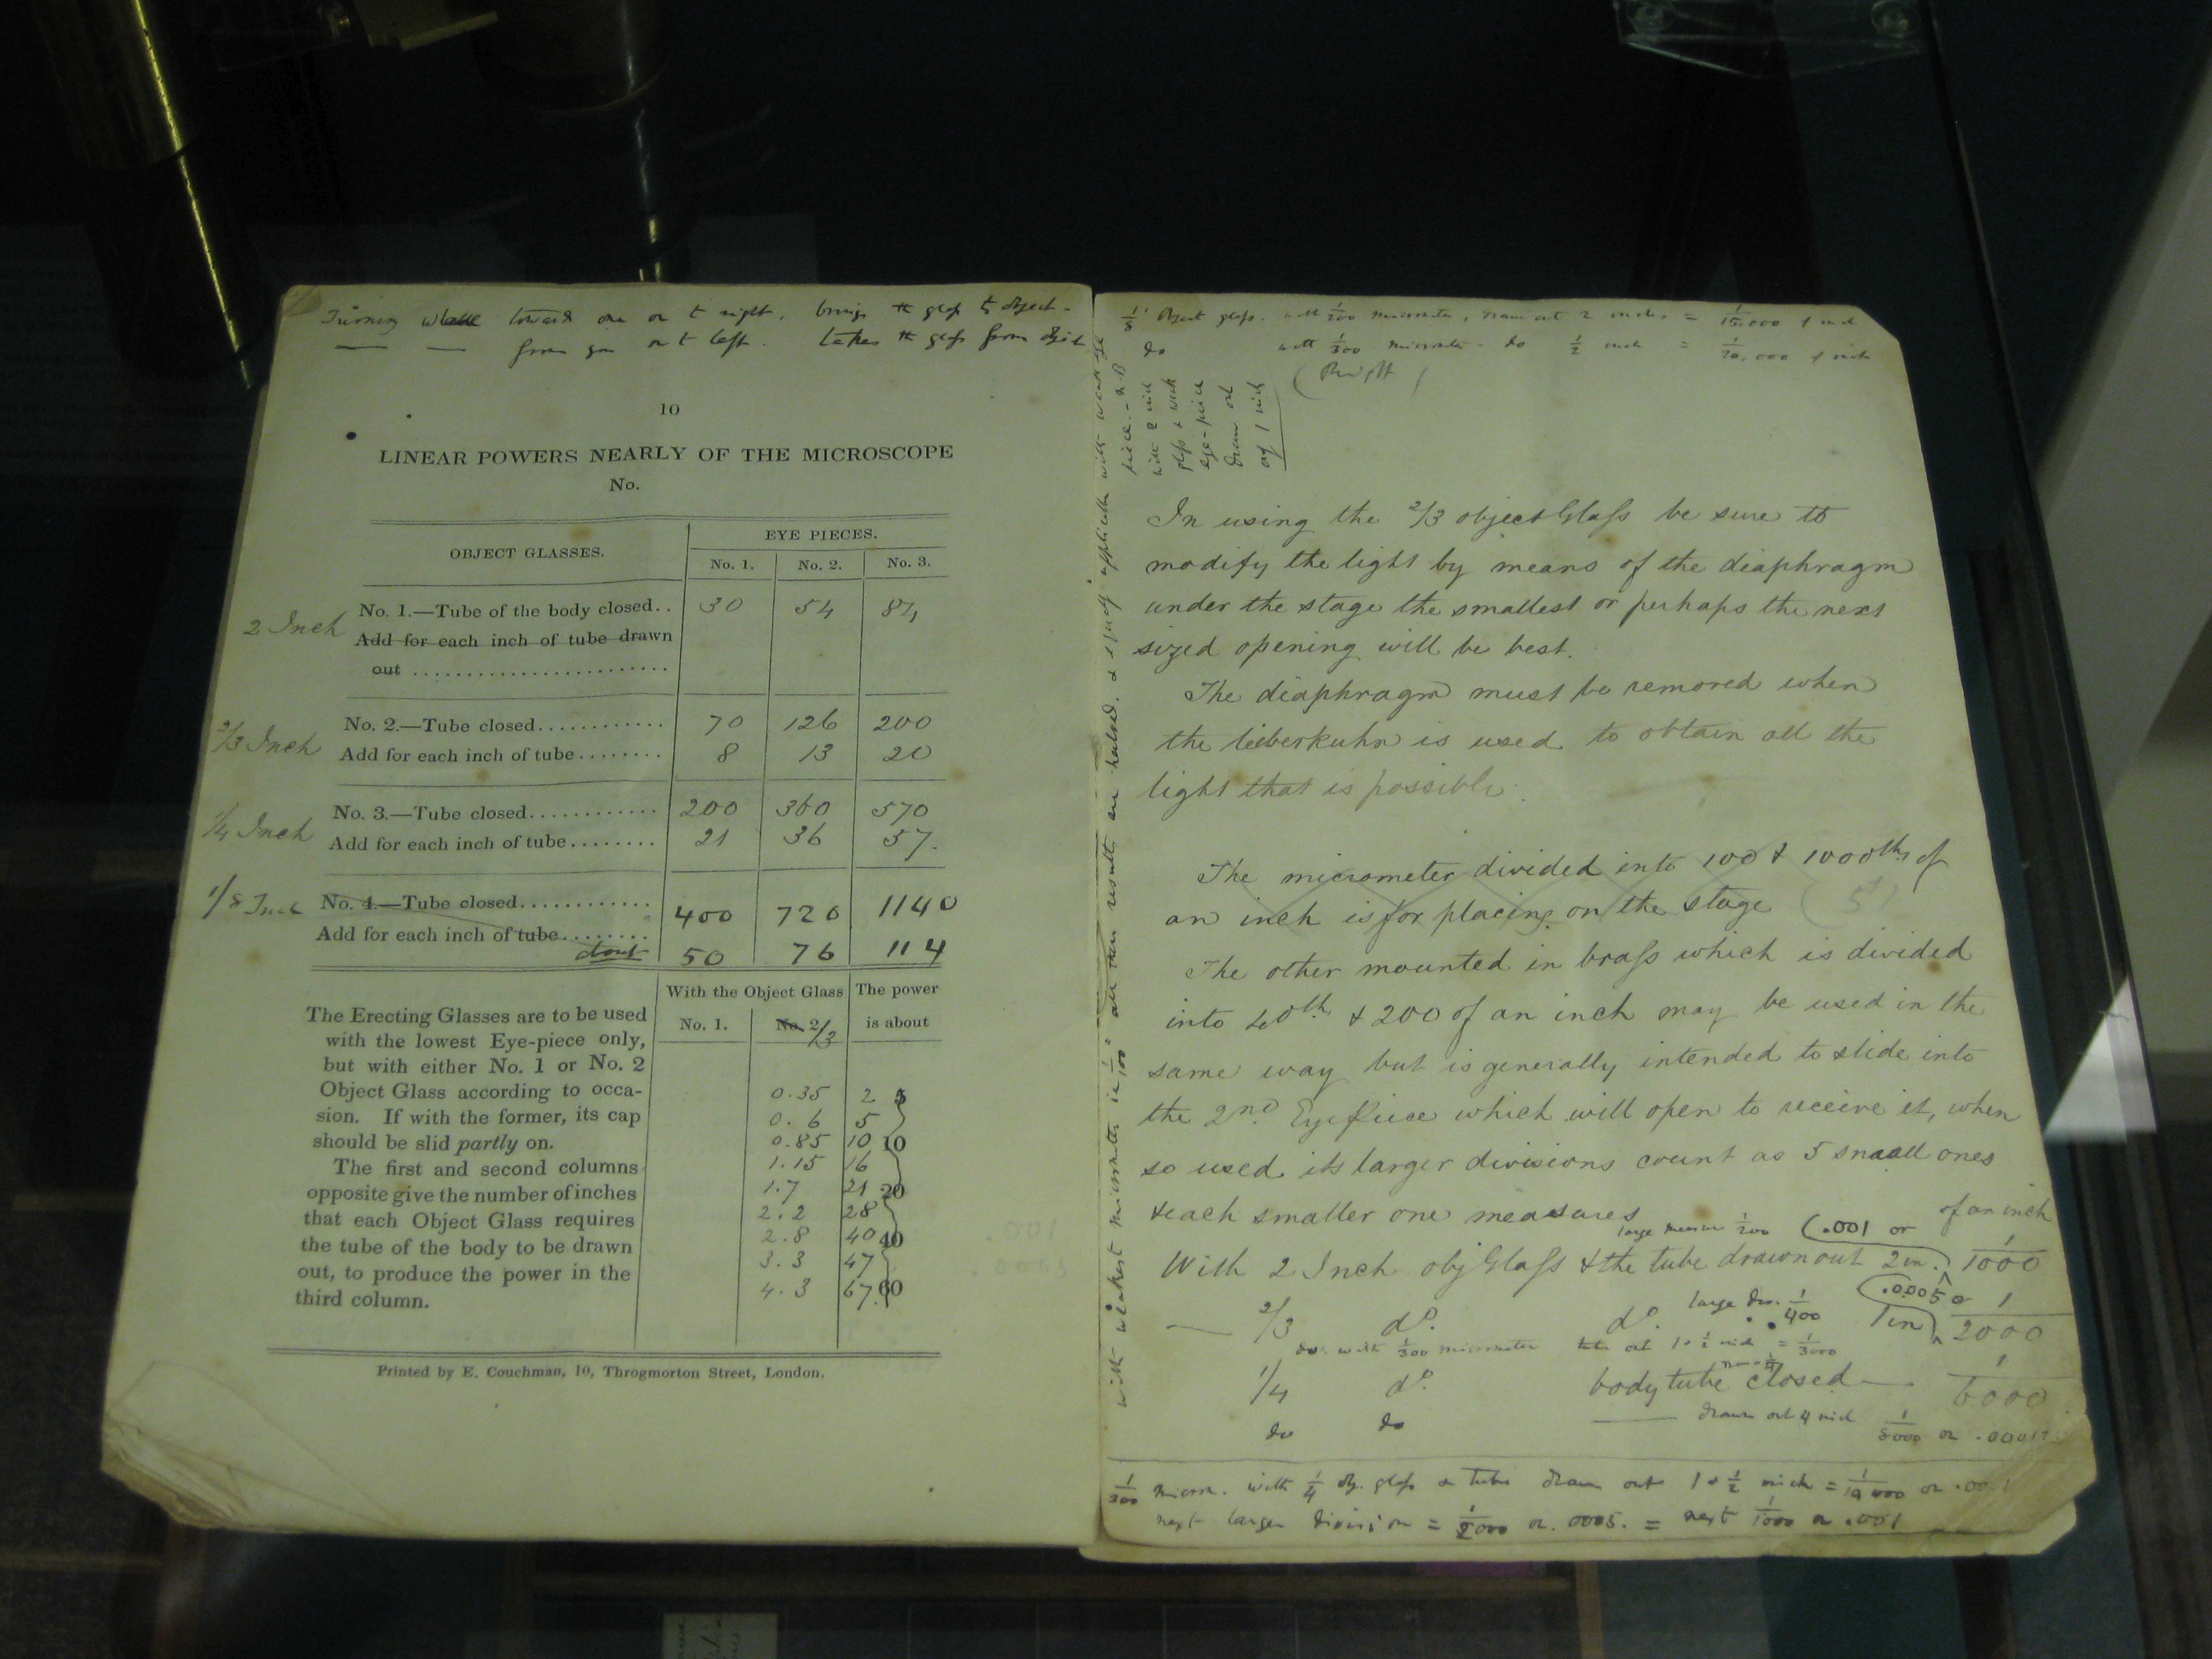 Turning wheel toward one or t right, brings the glass to object -
— — from you or t left. takes the glass from object
10
LINEAR POWERS NEARLY OF THE MICROSCOPE
No.
OBJECT GLASSES.
EYE PIECES.
No. 1. No. 2. No. 3.
2 Inch No. 1.—Tube of the body closed.. 30 54 87
Add for each inch of tube drawn
out ........................
2/3 Inch No. 2.—Tube closed............ 70 126 200
Add for each inch of tube........ 8 13 20
1/4 Inch No. 3.—Tube closed............ 200 360 570
Add for each inch of tube........ 21 36 57.
1/8 Inch No. 4.—Tube closed............ 400 720 1140
Add for each inch of tube........ 50 76 114
With the Object Glass The power
No. 1. No. 2/3 is about
The Erecting Glasses are to be used
with the lowest Eye-piece only,
but with either No. 1 or No. 2
Object Glass according to occa-
sion. If with the former, its cap
should be slid partly on.
The first and second columns
opposite give the number of inches
that each Object Glass requires
the tube of the body to be drawn
out, to produce the power in the
third column.
0.35 2 5
0.6 5
0.85 10 10
1.15 16
1.7 21 20
2.2 28
2.8 40 40
3.3 47
4.3 67 60
Printed by E. Couchman, 10, Throgmorton Street, London.
1/8 Object glass. with 1/200 micrometer, drawn out 2 inches = 1/15.000 of inch
do with 1/300 micrometer do 1/2 inch = 1/20.000 of inch
with 2 inch
glass & weak
eye-piece
draw out
only 1 inch
In using the 2/3 object Glass be sure to
modify the light by means of the diaphragm
under the stage the smallest or perhaps the next
sized opening will be best.
The diaphragm must be removed when
the lieberkuhn is used to obtain all the
light that is possible.
The micrometer divided into 100 & 1000ths of
an inch is for placing on the stage
The other mounted in brass which is divided
into 40th & 200 of an inch may be used in the
same way but is generally intended to slide into
the 2nd Eye Piece which will open to receive it, when
so used its larger divisions count as 5 small ones
& each smaller one measures of an inch
large measure 1/200 (.001 or
With 2 Inch obj Glass & the tube drawn out 2 in. 1/1000
— 2/3 do. do. large div. 1/400 1 in .0005 or 1/2000
do. with 1/300 micrometer tube out 1 & 1/2 inch = 1/3000
1/4 do. body tube closed — 1/6000
do do — drawn out 4 inch 1/8000 or
1/300 microm. with 1/4 obj. glass & tube drawn out 1 & 1/2 inch = 1/10 000 or
next larger division = 1/2000 or .0005. = next 1/1000 or .001